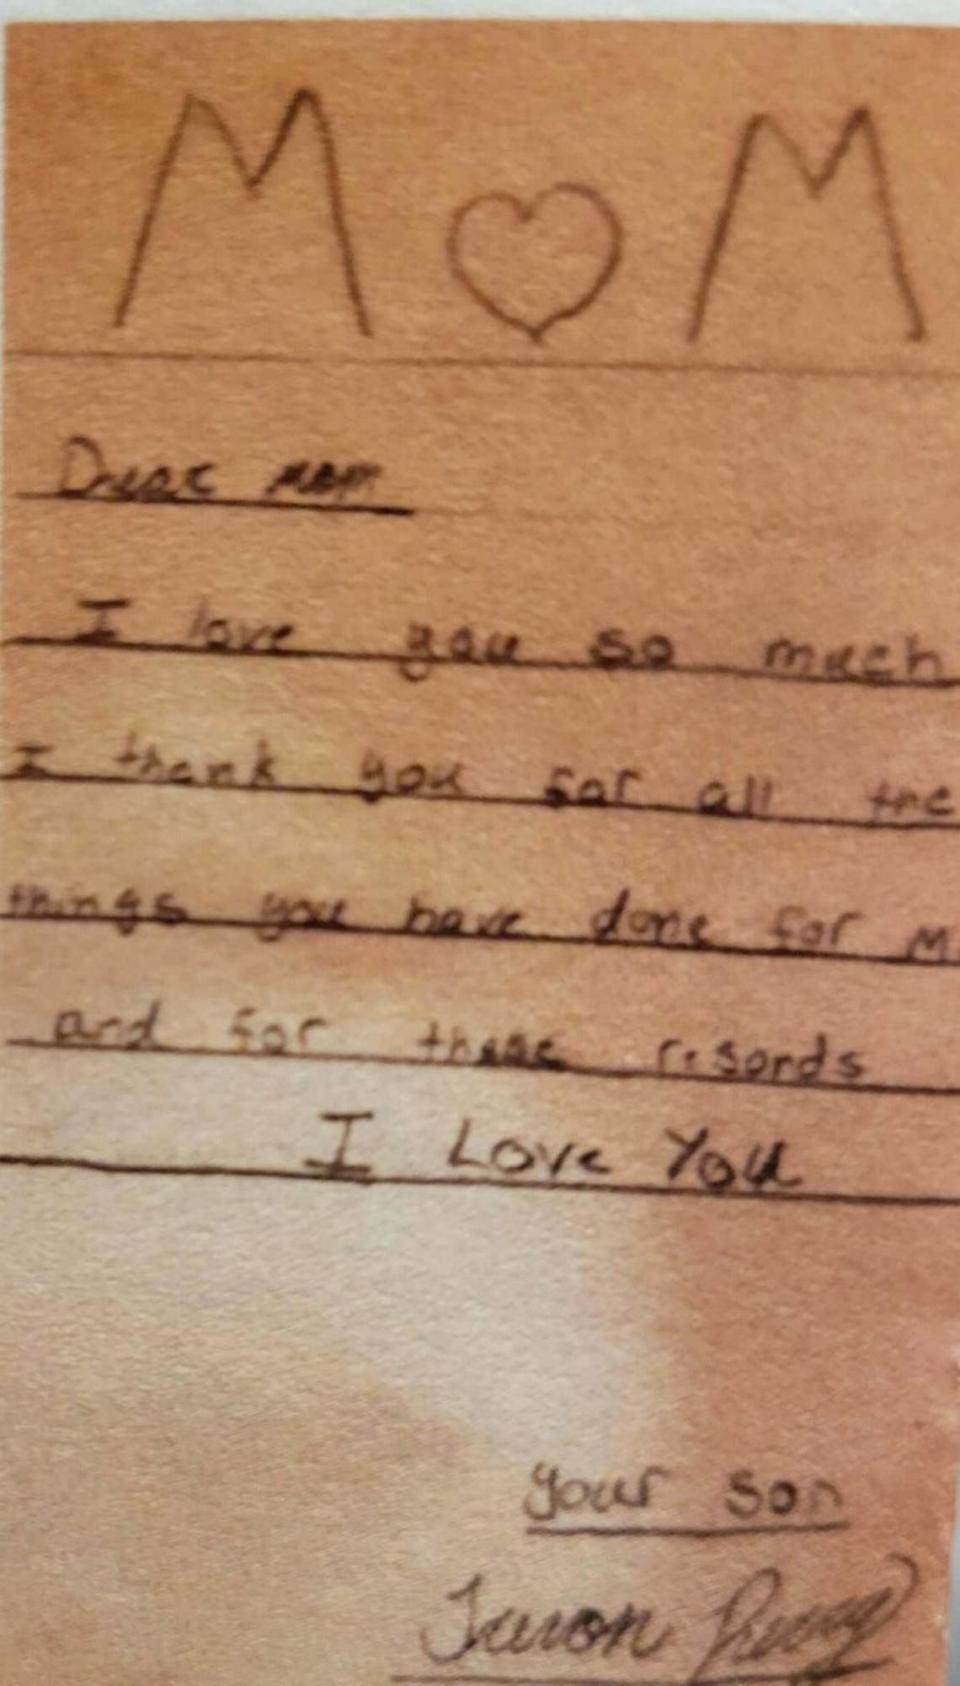 M♡M
Dear mom
I love you so much
I thank you for all the
things you have done for
and for these risonds
I Love You
your son